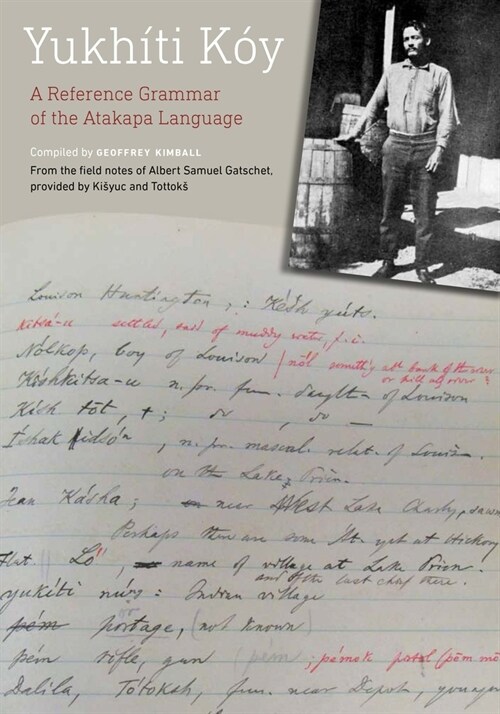 Yukhíti Kóy
A Reference Grammar
of the Atakapa Language
Compiled by GEOFFREY KIMBALL
From the field notes of Albert Samuel Gatschet,
provided by Kišyuc and Tottokš
Louison Huntington; : Késh yúts.
Kitsá-u settled, said of muddy water, f. i.
Nólkop, boy of Louison / nól someth'g abt bank of the river
or hill alg river ?
Kíshkitsa-u n. pr. fem. daught- of Louison
Kish tót, +; do , do —
Íshak , n. pr. mascul. relat. of
on the Lake, Prien.
Jean Kásha; near West Lake Charley,
Perhaps there are some Át. yet at Hickory
Flat. Ló, name of village at Lake Prien.
and of the last chief there.
yukíti núts: Indian village
pém portage, (not known)
pém rifle, gun (pém; pámok (pōm mō
Dalíla, Tótoksh, fem. near Depot, younger